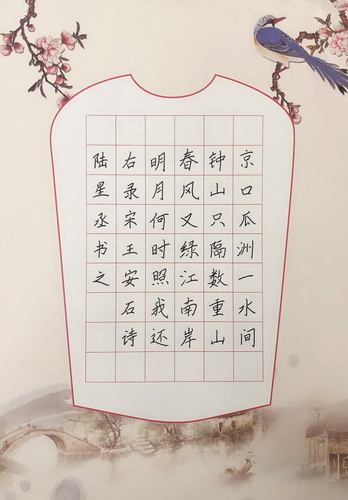 京口瓜洲一水间
钟山只隔数重山
春风又绿江南岸
明月何时照我还
右录宋王安石诗
陆星丞书之